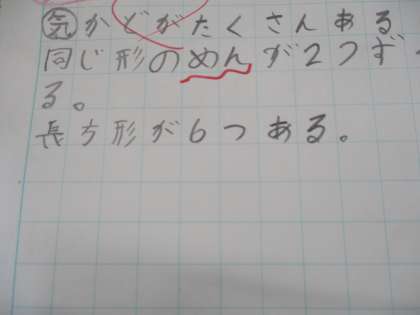 気かどがたくさんある
同じ形のめんが2つず
る。
長方形が6つある。